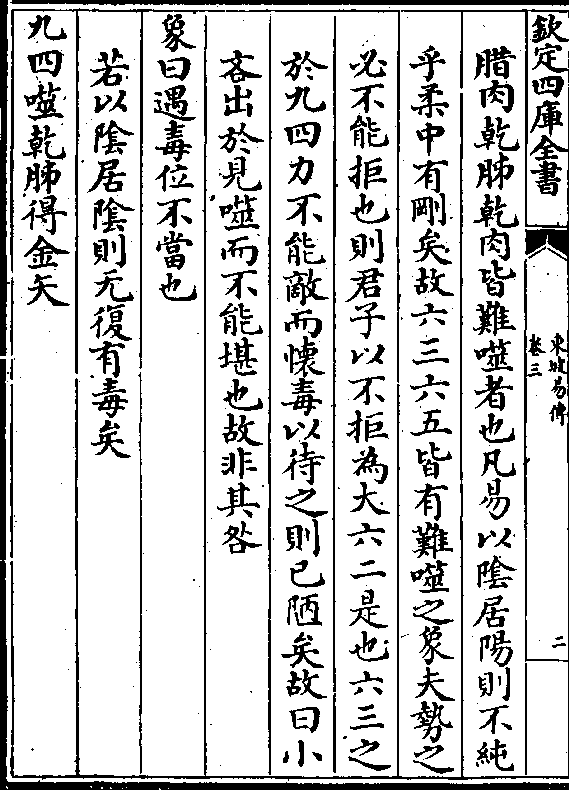 欽定四庫全書
東坡易傳
卷三
二
腊肉乾胏乾肉皆難噬者也凡易以陰居陽則不純
乎柔中有剛矣故六三六五皆有難噬之象夫勢之
必不能拒也則君子以不拒為大六二是也六三之
於九四力不能敵而懷毒以待之則已陋矣故曰小
吝出於見噬而不能堪也故非其咎
象曰遇毒位不當也
若以陰居陰則无復有毒矣
九四噬乾胏得金矢